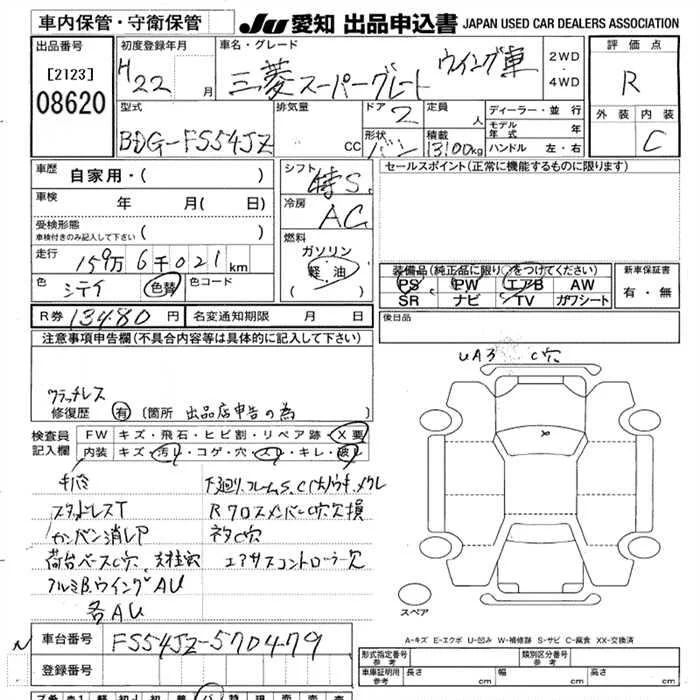 車内保管・守衛保管
JU 愛知 出品申込書 JAPAN USED CAR DEALERS ASSOCIATION
出品番号 初度登録年月 車名・グレード 評価点
[2123] H22 月 三菱スーパーグレート ウイング車 2WD・4WD R
08620
型式 排気量 ドア 2 定員 人 ディーラー・並行 外装 内装
BDG-FS54JZ CC 形状 バン 積載 13100kg モデル年式 年 C
ハンドル 左・右
車歴 自家用・( ) シフト 特S. セールスポイント(正常に機能するものに限ります)
車検 年 月( 日) 冷房 AC
受検形態 車検付きのみ記入して下さい ( )
燃料 ガソリン
走行 159万6千021km 軽油
( )
装備品(純正品に限り○をつけてください) 新車保証書
色 シテイ 色替 色コード PS PW エアB AW 有・無
SR ナビ TV ガワシート
R券 13480円 名変通知期限 月 日 後日品
注意事項申告欄(不具合内容等は具体的に記入して下さい)
UA3 C穴
クラッチレス
修復歴 有 [箇所 出品店申告の為 ]
検査員記入欄 FW キズ・飛石・ヒビ割・リペア跡・X要
内装 キズ・汚レ・コゲ・穴・スレ・キレ・破レ
キバミ 下廻リ.フレームS.C(大)ウキ.メクレ
スタッドレスT R70スメンバーC穴欠損
カンバン消しP ネタC穴
荷台ベースC穴 エアサスコントローラー欠
アルミB.ウイングAU
各AU
スペア
A-キズ E-エクボ U-凹み W-補修跡 S-サビ C-腐食 XX-交換済
車台番号 FS54JZ-570479
登録番号
形式指定番号 参考 類別区分番号 参考
車庫証明用 参考 長さ cm 幅 cm 高さ cm